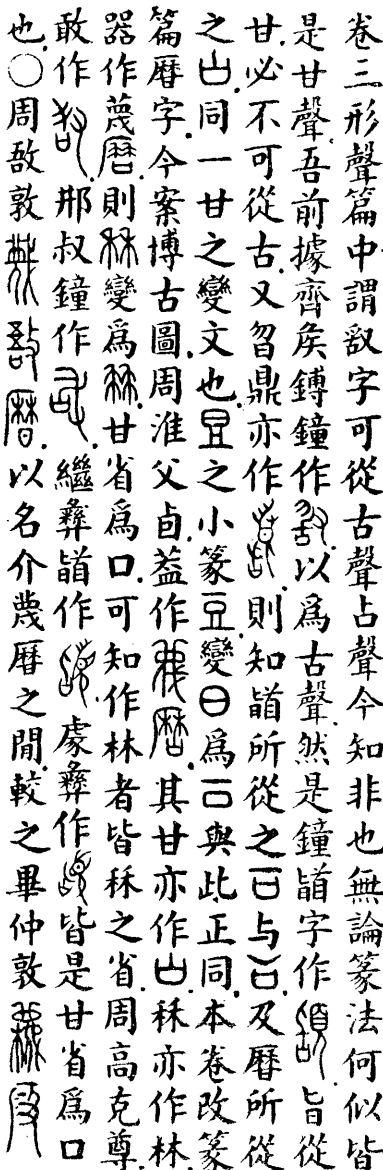 卷三形聲篇中謂敢字可從古聲占聲今知非也無論篆法何似皆
是甘聲吾前據齊矦鎛鐘作以爲古聲然是鐘䭫字作旨從
甘必不可從古又曶鼎亦作則知䭫所從之与及曆所從
之同一甘之變文也之小篆豆變日爲與此正同本卷改篆
篇曆字今案博古圖周淮父卣葢作其甘亦作秝亦作林
器作蔑曆則秝變爲甘省爲口可知作林者皆秝之省周高克尊
敢作邢叔鐘作繼彝䭫作䖏彝作皆是甘省爲口
也〇周敔敦以名介蔑曆之閒較之畢仲敦